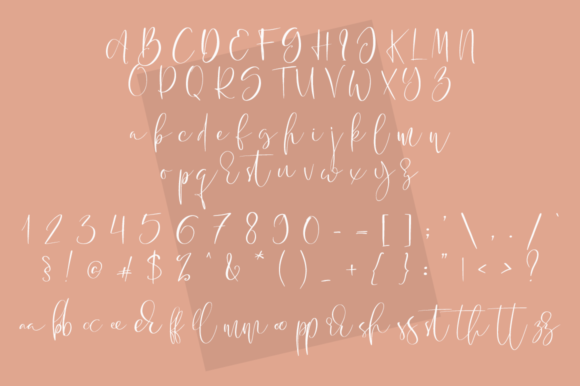 A B C D E F G H I J K L M N
O P Q R S T U V W X Y Z
a b c d e f g h i j k l m n
o p q r s t u v w x y z
1 2 3 4 5 6 7 8 9 0 - = [ ] ; ' \ , . / `
§ ! @ # $ % ^ & * ( ) _ + { } : " | < > ?
aa bb cc ee er ff ll mm oo pp rr sh ss st th tt zz